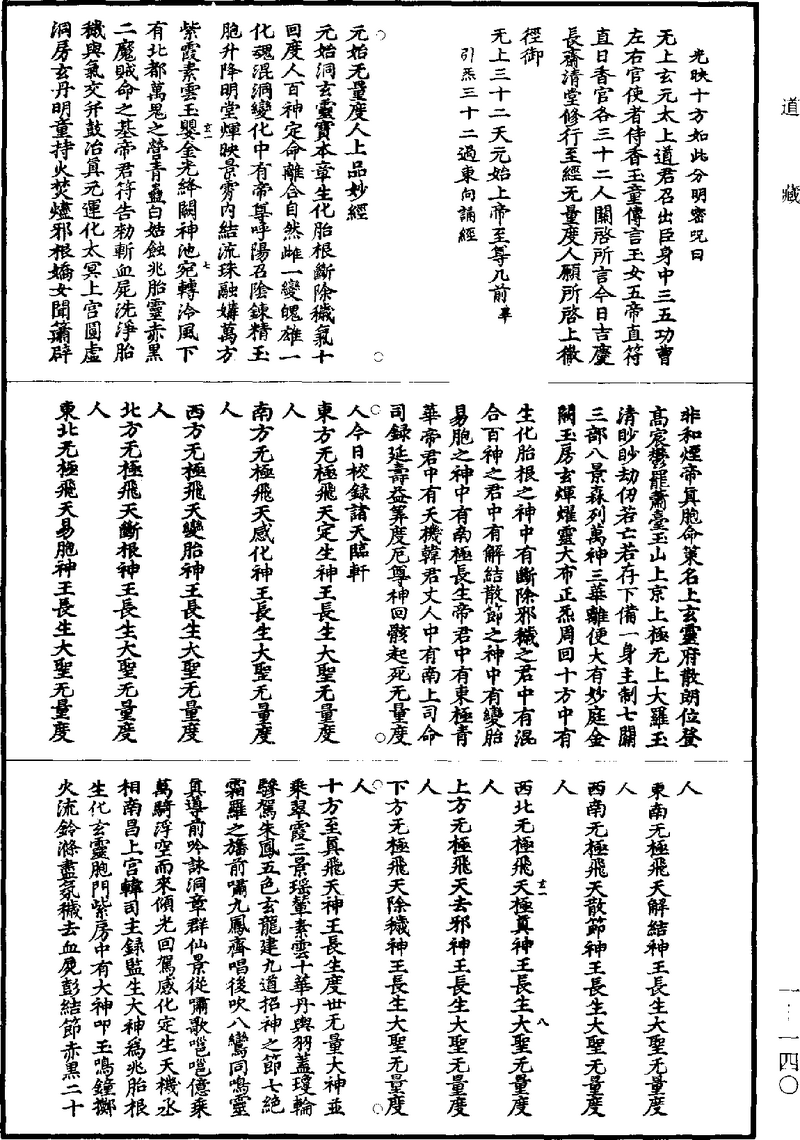 道藏
光映十方如此分明密呪曰
无上玄元太上道君召出臣身中三五功曹
左右官使者侍香玉童傳言玉女五帝直符
直日香官各三十二人關啓所言今日吉慶
長齋清堂修行至經无量度人願所啓上徹
徑御
无上三十二天元始上帝至尊几前畢
引炁三十二過東向誦經
元始无量度人上品妙經
元始洞玄靈寶本章生化胎根斷除穢氣十
回度人百神定命離合自然雌一變魄雄一
化魂混洞變化中有帝尊呼陽召陰鍊精玉
胞升降明堂煇映景霄內結流珠融媾萬方
紫霞素雲玉嬰金光絳闕神池宛轉泠風下
有北都萬鬼之營青蠱白姑蝕兆胎靈赤黑
二魔賊命之基帝君符告勑斬血尸洗淨胎
穢與氣交并鼓冶真元運化太冥上宮圓虛
洞房玄丹明童持火焚爐邪根嬌女聞簫辟
玄二
七
非和煙帝真胞命葉名上玄靈府散朗位登
高宸鬱羅蕭臺玉山上京上極无上大羅玉
清眇眇劫仞若亡若存下備一身主制七關
三部八景森列萬神三華離便大有妙庭金
闕玉房玄煇燿靈大布正炁周回十方中有
生化胎根之神中有斷除邪穢之君中有混
合百神之君中有解結散節之神中有變胎
易胞之神中有南極長生帝君中有東極青
華帝君中有天機韓君丈人中有南上司命
司録延壽益筭度厄尊神回骸起死无量度
人今日校録諸天臨軒
東方无極飛天定生神王長生大聖无量度
人
南方无極飛天感化神王長生大聖无量度
人
西方无極飛天變胎神王長生大聖无量度
人
北方无極飛天斷根神王長生大聖无量度
人
東北无極飛天易胞神王長生大聖无量度
人
東南无極飛天解結神王長生大聖无量度
人
西南无極飛天散節神王長生大聖无量度
人
西北无極飛天極真神王長生大聖无量度
人
玄二
八
上方无極飛天去邪神王長生大聖无量度
人
下方无極飛天除穢神王長生大聖无量度
人
十方至真飛天神王長生度世无量大神並
乘翠霞三景瑤輦素雲十華丹輿羽蓋瓊輪
驂駕朱鳳五色玄龍建九道招神之節七絕
霜羅之旛前嘯九鳳齊唱後吹八鸞同鳴靈
真導前吟詠洞章群仙景從嘯歌嗈嗈億乘
萬騎浮空而來傾光回駕感化定生天機丞
相南昌上宮韓司主録監生大神爲兆胎根
生化玄靈胞門紫房中有大神叩玉鳴鐘擲
火流鈴滌盡氛穢去血尸彭結節赤黑二十
一一一四〇